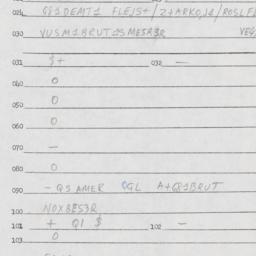 024 G81DEMT1 FLEJS+/Z+ARKOJ1/ROSLF
030 VUSM1BRUT1SMESR3R VE
031 $+ 032 —
040 0
050 0
060 0
070 —
080 0
090 — QS AMER OGL A+Q81BRUT
100 NOXBES3R
101 + Q1 $ 102 —
103 0